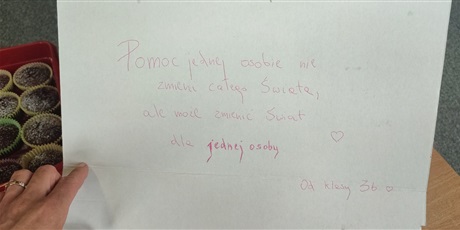 Pomoc jednej osobie nie
zmieni całego Świata,
ale może zmienić Świat
dla jednej osoby
Od klasy 3b